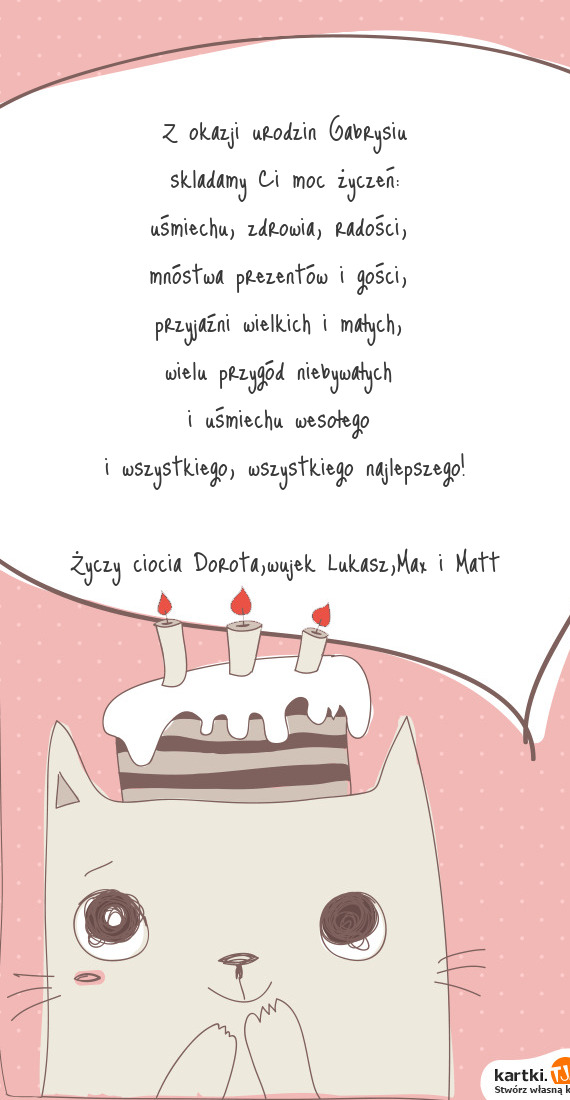 Z okazji urodzin Gabrysiu
skladamy Ci moc życzeń:
uśmiechu, zdrowia, radości,
mnóstwa prezentów i gości,
przyjaźni wielkich i małych,
wielu przygód niebywałych
i uśmiechu wesołego
i wszystkiego, wszystkiego najlepszego!
Życzy ciocia Dorota,wujek Lukasz,Max i Matt
kartki.TJ
Stwórz własną k